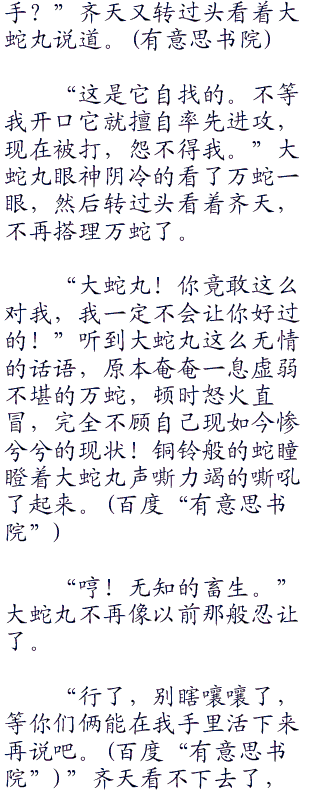 手？”齐天又转过头看着大
蛇丸说道。(有意思书院)
“这是它自找的。不等
我开口它就擅自率先进攻，
现在被打，怨不得我。”大
蛇丸眼神阴冷的看了万蛇一
眼，然后转过头看着齐天，
不再搭理万蛇了。
“大蛇丸！你竟敢这么
对我，我一定不会让你好过
的！”听到大蛇丸这么无情
的话语，原本奄奄一息虚弱
不堪的万蛇，顿时怒火直
冒，完全不顾自己现如今惨
兮兮的现状！铜铃般的蛇瞳
瞪着大蛇丸声嘶力竭的嘶吼
了起来。(百度“有意思书
院”)
“哼！无知的畜生。”
大蛇丸不再像以前那般忍让
了。
“行了，别瞎嚷嚷了，
等你们俩能在我手里活下来
再说吧。(百度“有意思书
院”)”齐天看不下去了，